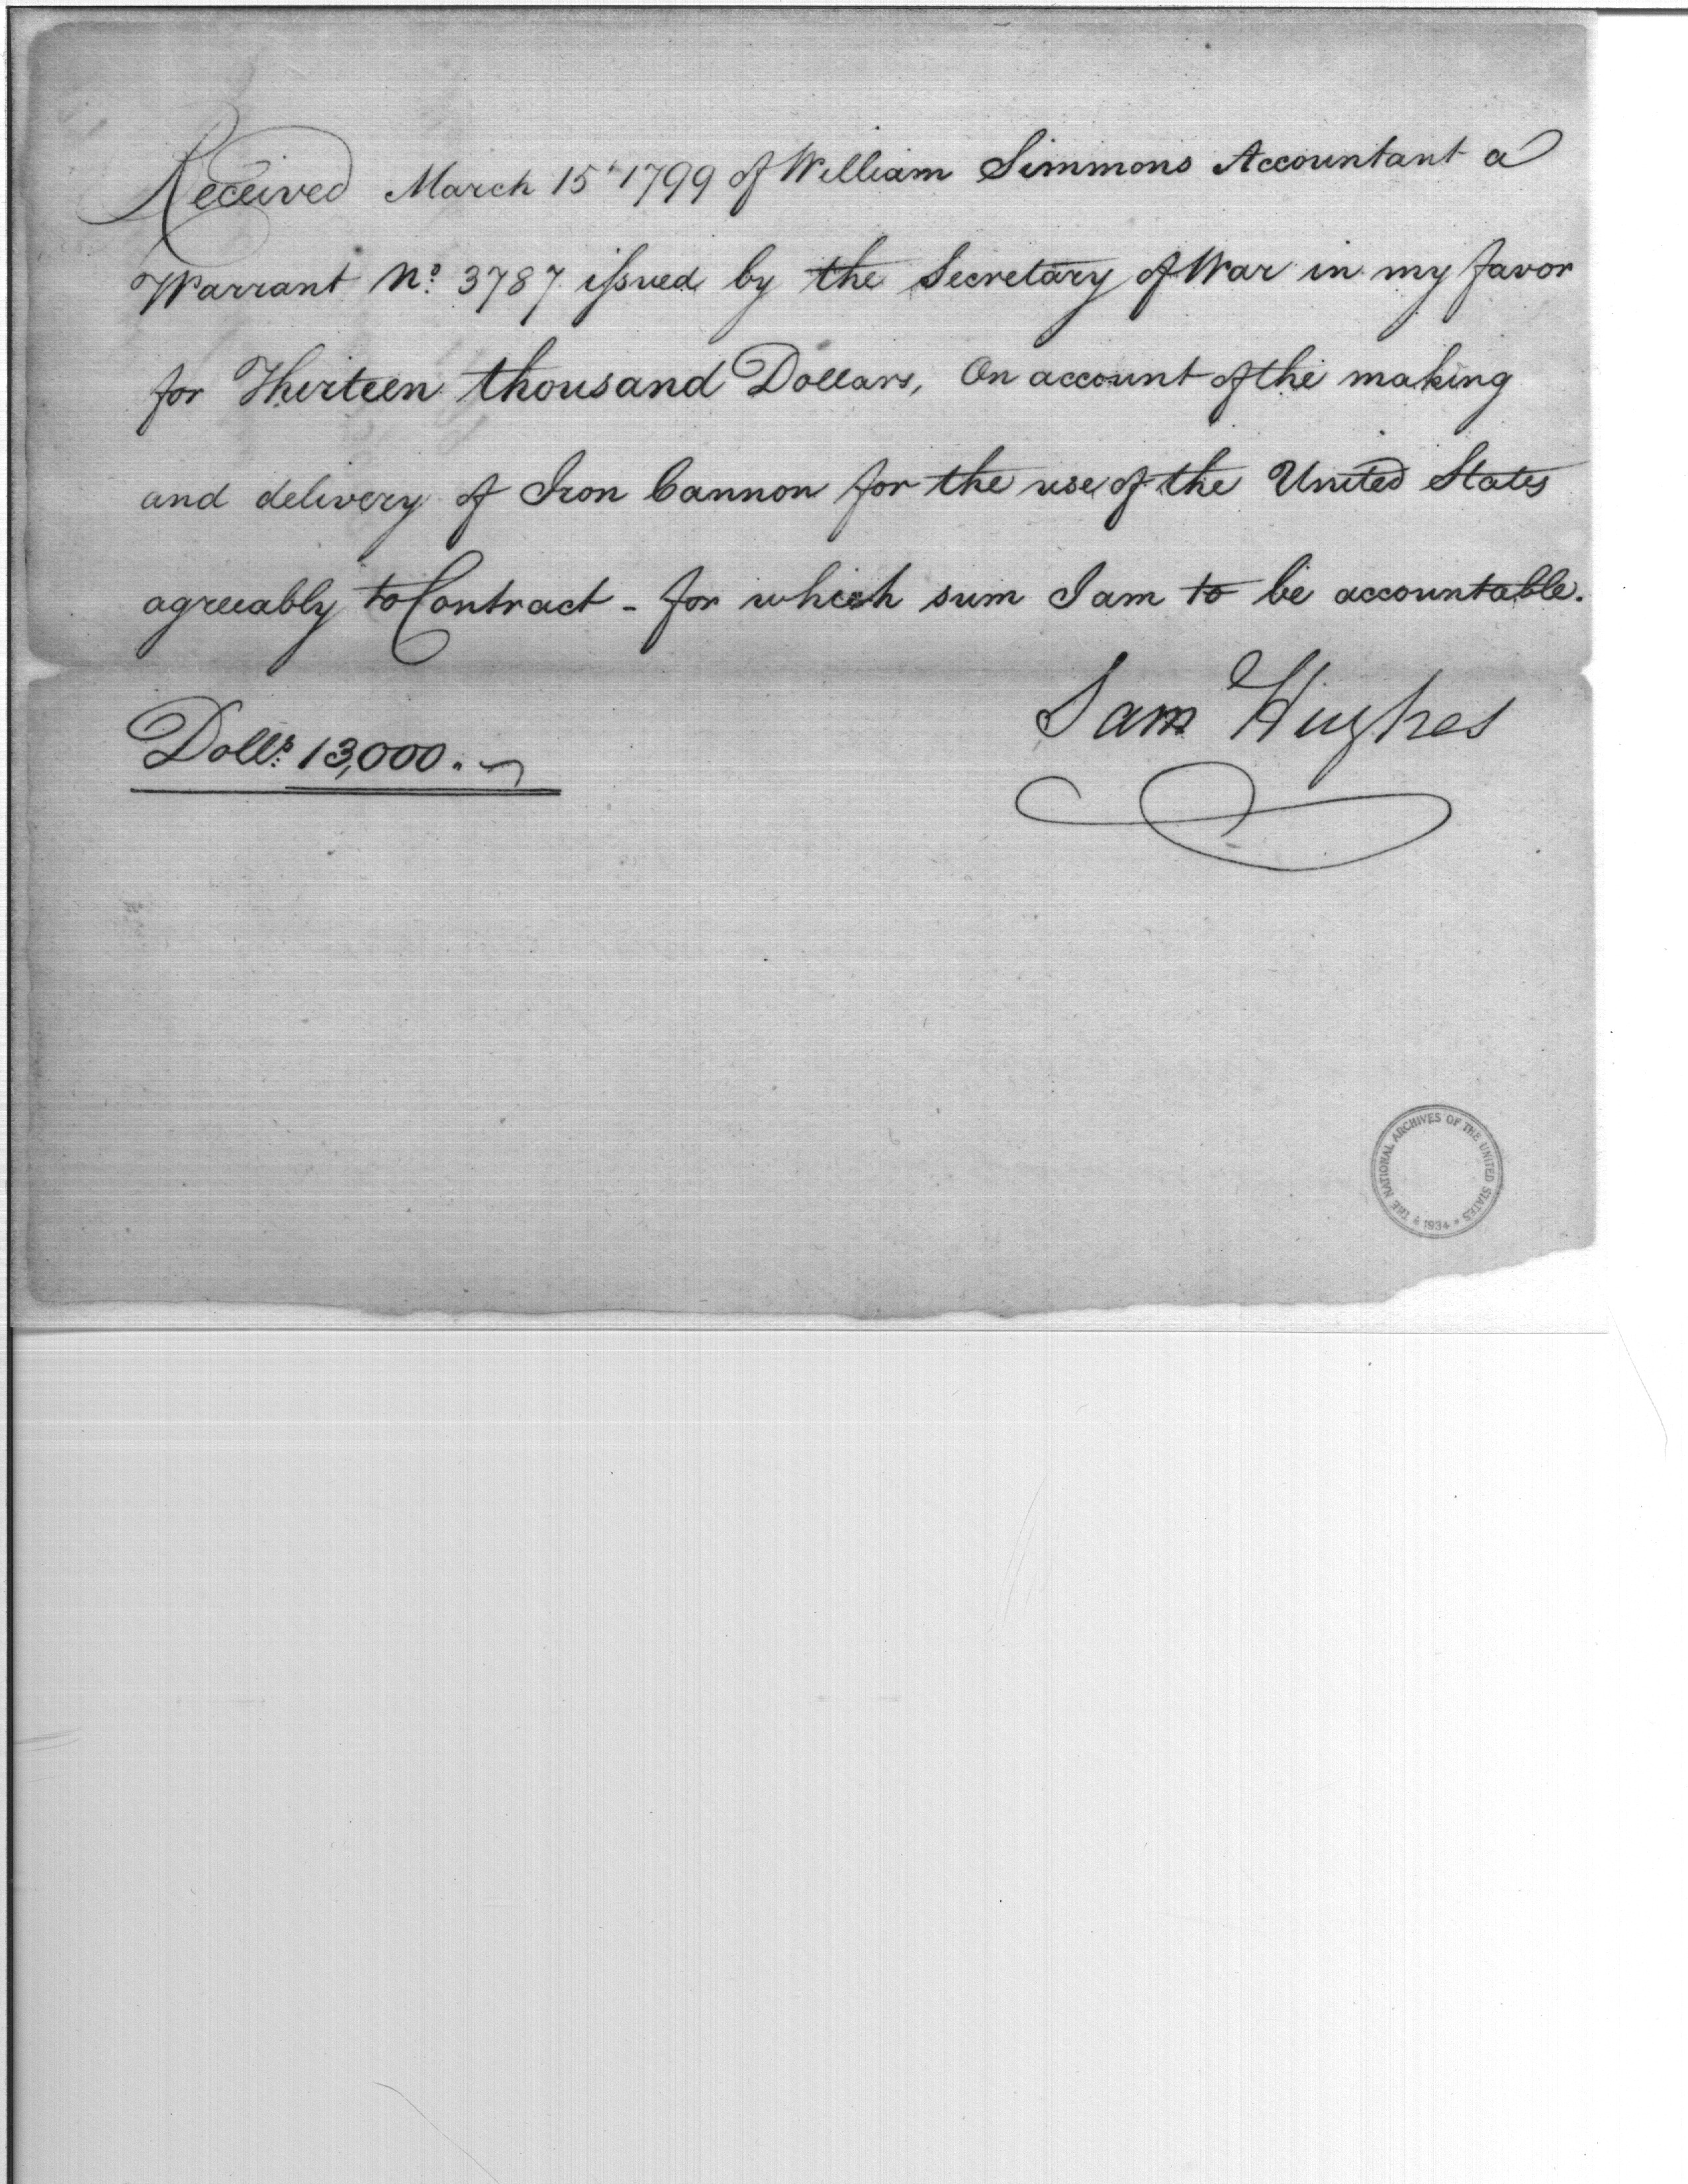 Received March 15th 1799 of William Simmons Accountant a
Warrant No. 3787 issued by the Secretary of War in my favor
for Thirteen thousand Dollars, On account of the making
and delivery of Iron Cannon for the use of the United States
agreeably to Contract - for which sum I am to be accountable.
Sam Hughes
Dolls. 13,000.
THE NATIONAL ARCHIVES OF THE UNITED STATES
* 1934 *